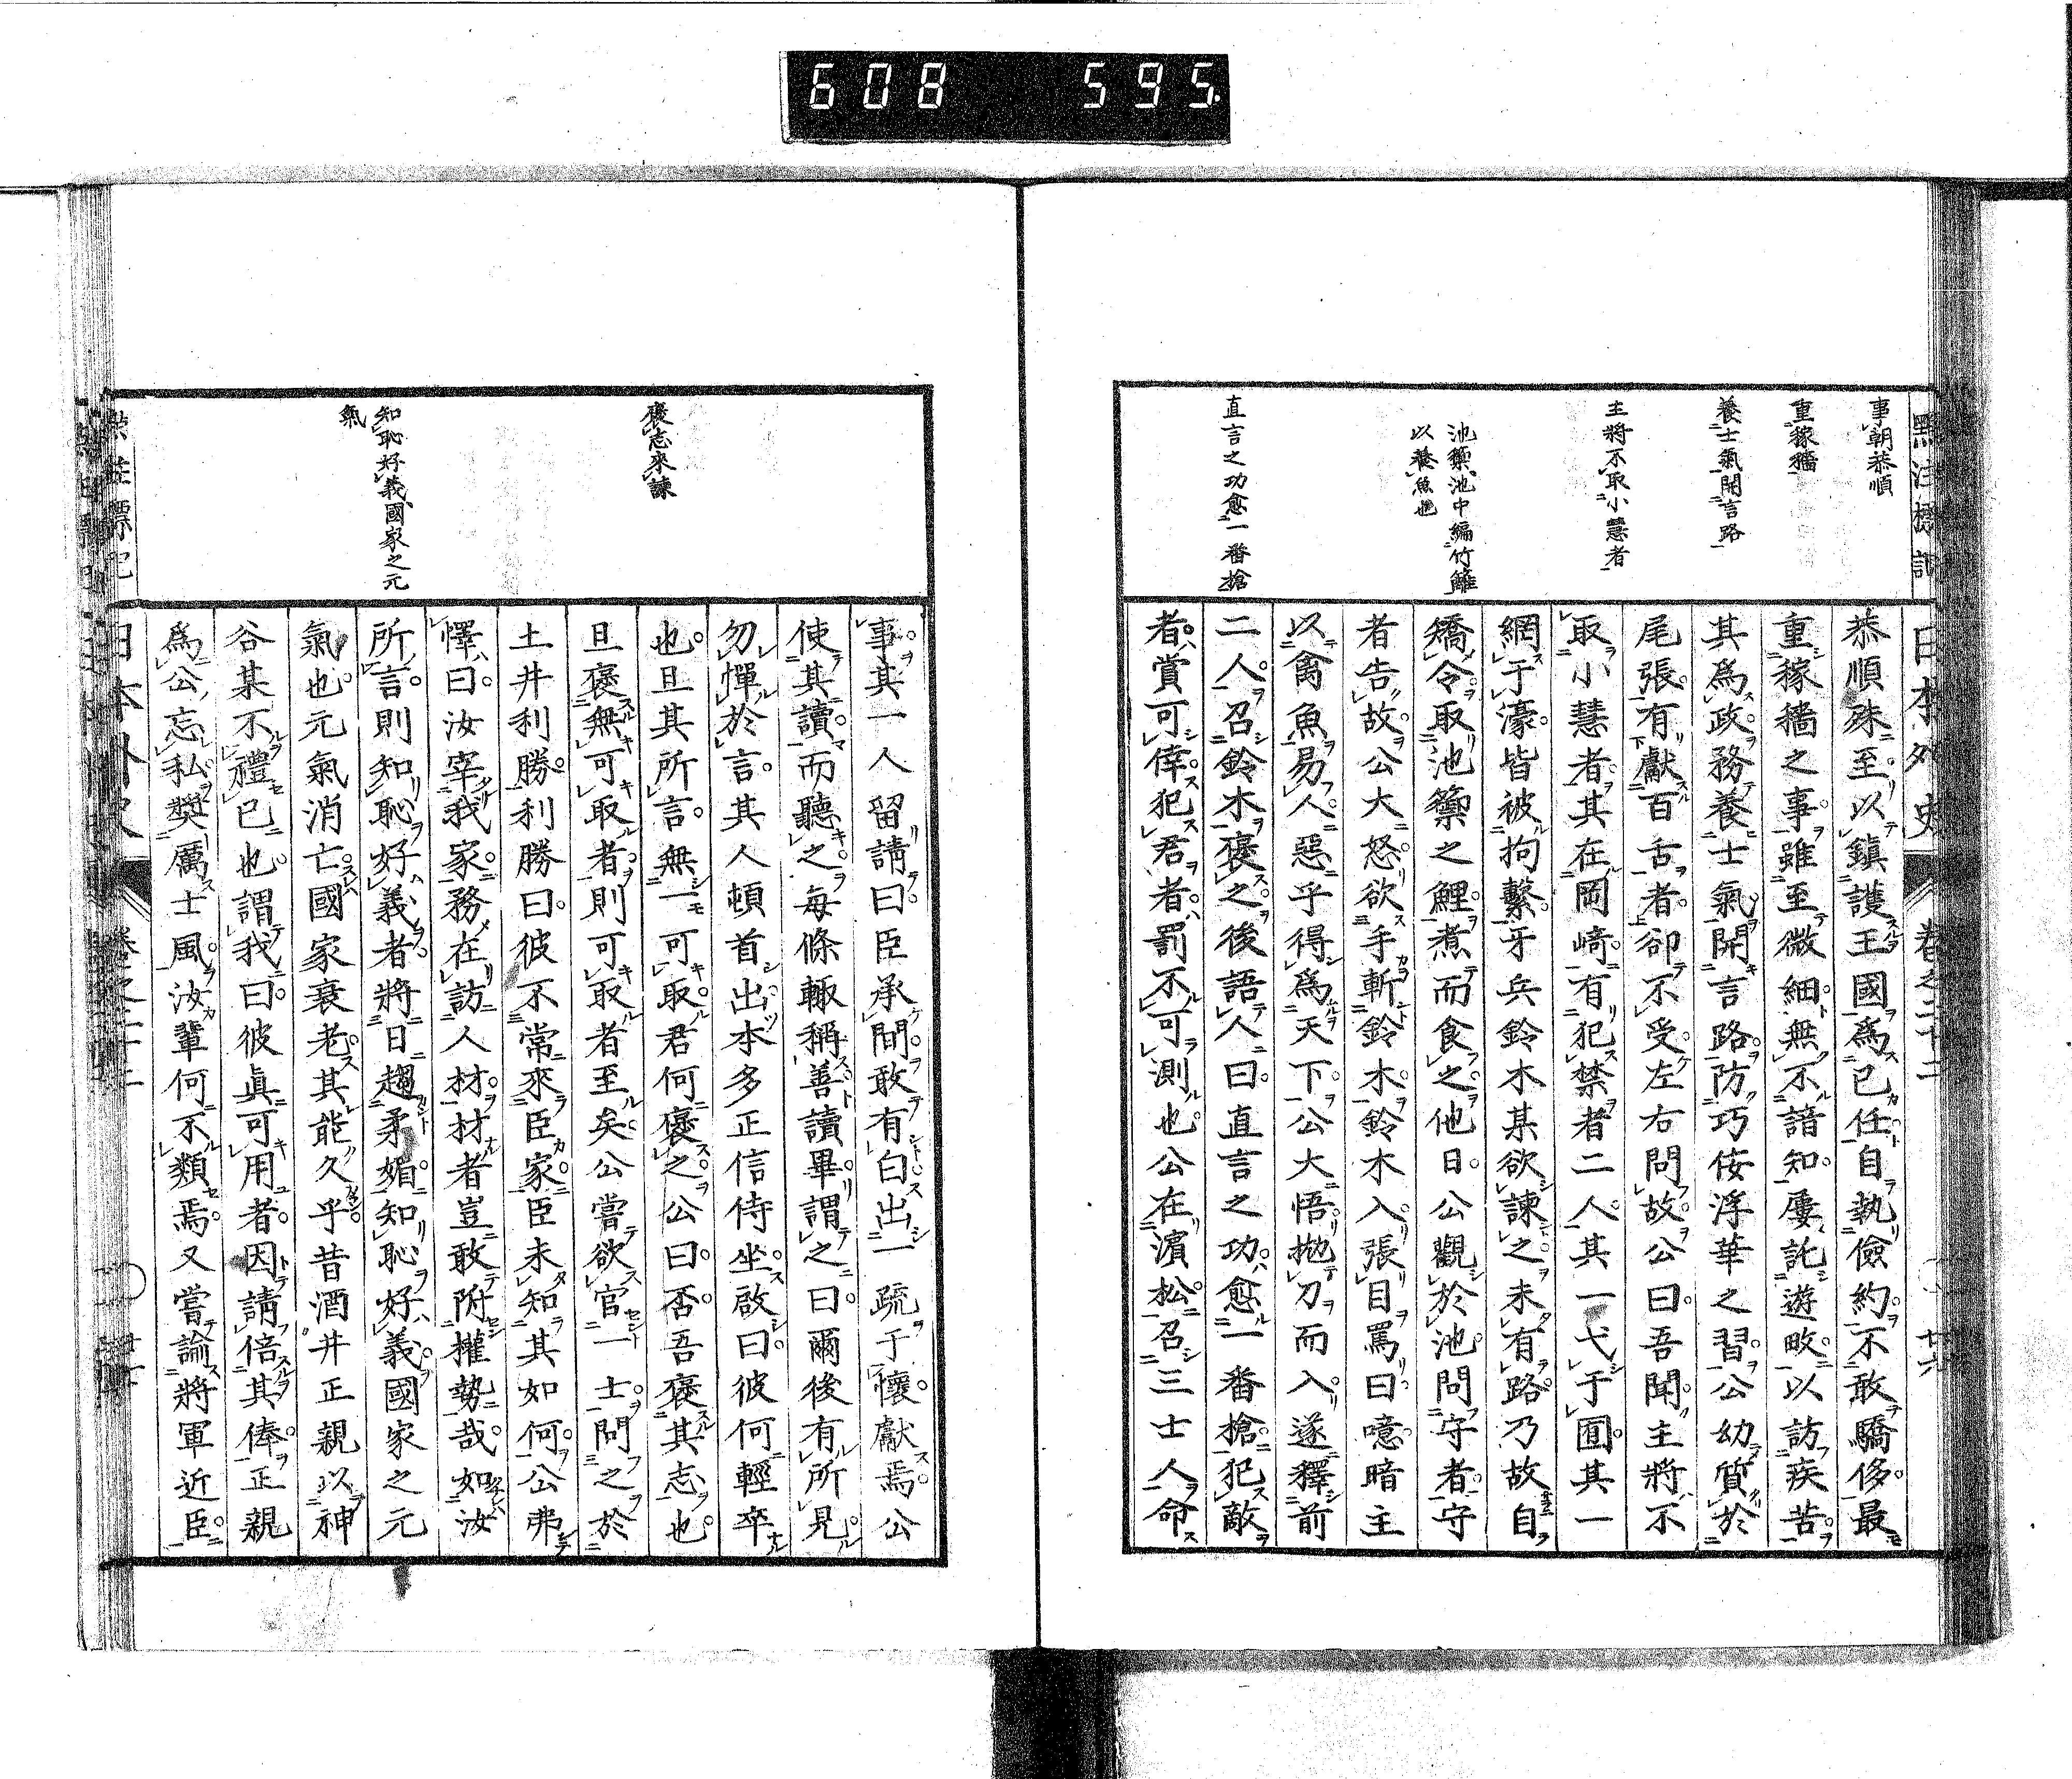 608 595.
日本外史
卷之二十二
事朝恭順
重稼穡
養士氣開言路
主將不取小慧者
池籞池中編竹籬
以養魚也
直言之功愈一番槍
恭順殊至以鎭護王國爲己任自執儉約不敢驕侈最
重稼穡之事雖至微細無不諳知屢託遊畋以訪疾苦
其爲政務養士氣開言路防巧佞浮華之習公幼質於
尾張有獻百舌者卻不受左右問故公曰吾聞主將不
取小慧者其在岡崎有犯禁者二人其一弋于囿其一
網于濠皆被拘繫牙兵鈴木某欲諫之未有路乃故自
矯令取池籞之鯉煮而食之他日公觀於池問守者守
者告故公大怒欲手斬鈴木鈴木入張目罵曰噫暗主
以禽魚易人惡乎得爲天下公大悟抛刀而入遂釋前
二人召鈴木褒之後語人曰直言之功愈一番槍犯敵
者賞可倖犯君者罰不可測也公在濱松召三士人命
褒志來諫
知恥好義國家之元
氣
事其一人留請曰臣承間敢有白出一疏于懷獻焉公
使其讀而聽之每條輙稱善讀畢謂之曰爾後有所見
勿憚於言其人頓首出本多正信侍坐啟曰彼何輕卒
也且其所言無一可取君何褒之公曰否吾褒其志也
且褒無可取者則可取者至矣公嘗欲官一士問之於
土井利勝利勝曰彼不常來臣家臣未知其如何公弗
懌曰汝宰我家務在訪人材材者豈敢附權勢哉如汝
所言則知恥好義者將日趨柔媚知恥好義國家之元
氣也元氣消亡國家衰老其能久乎昔酒井正親以神
谷某不禮已也謂我曰彼眞可用者因請倍其俸正親
爲公忘私奬厲士風汝輩何不類焉又嘗論將軍近臣
日本外史